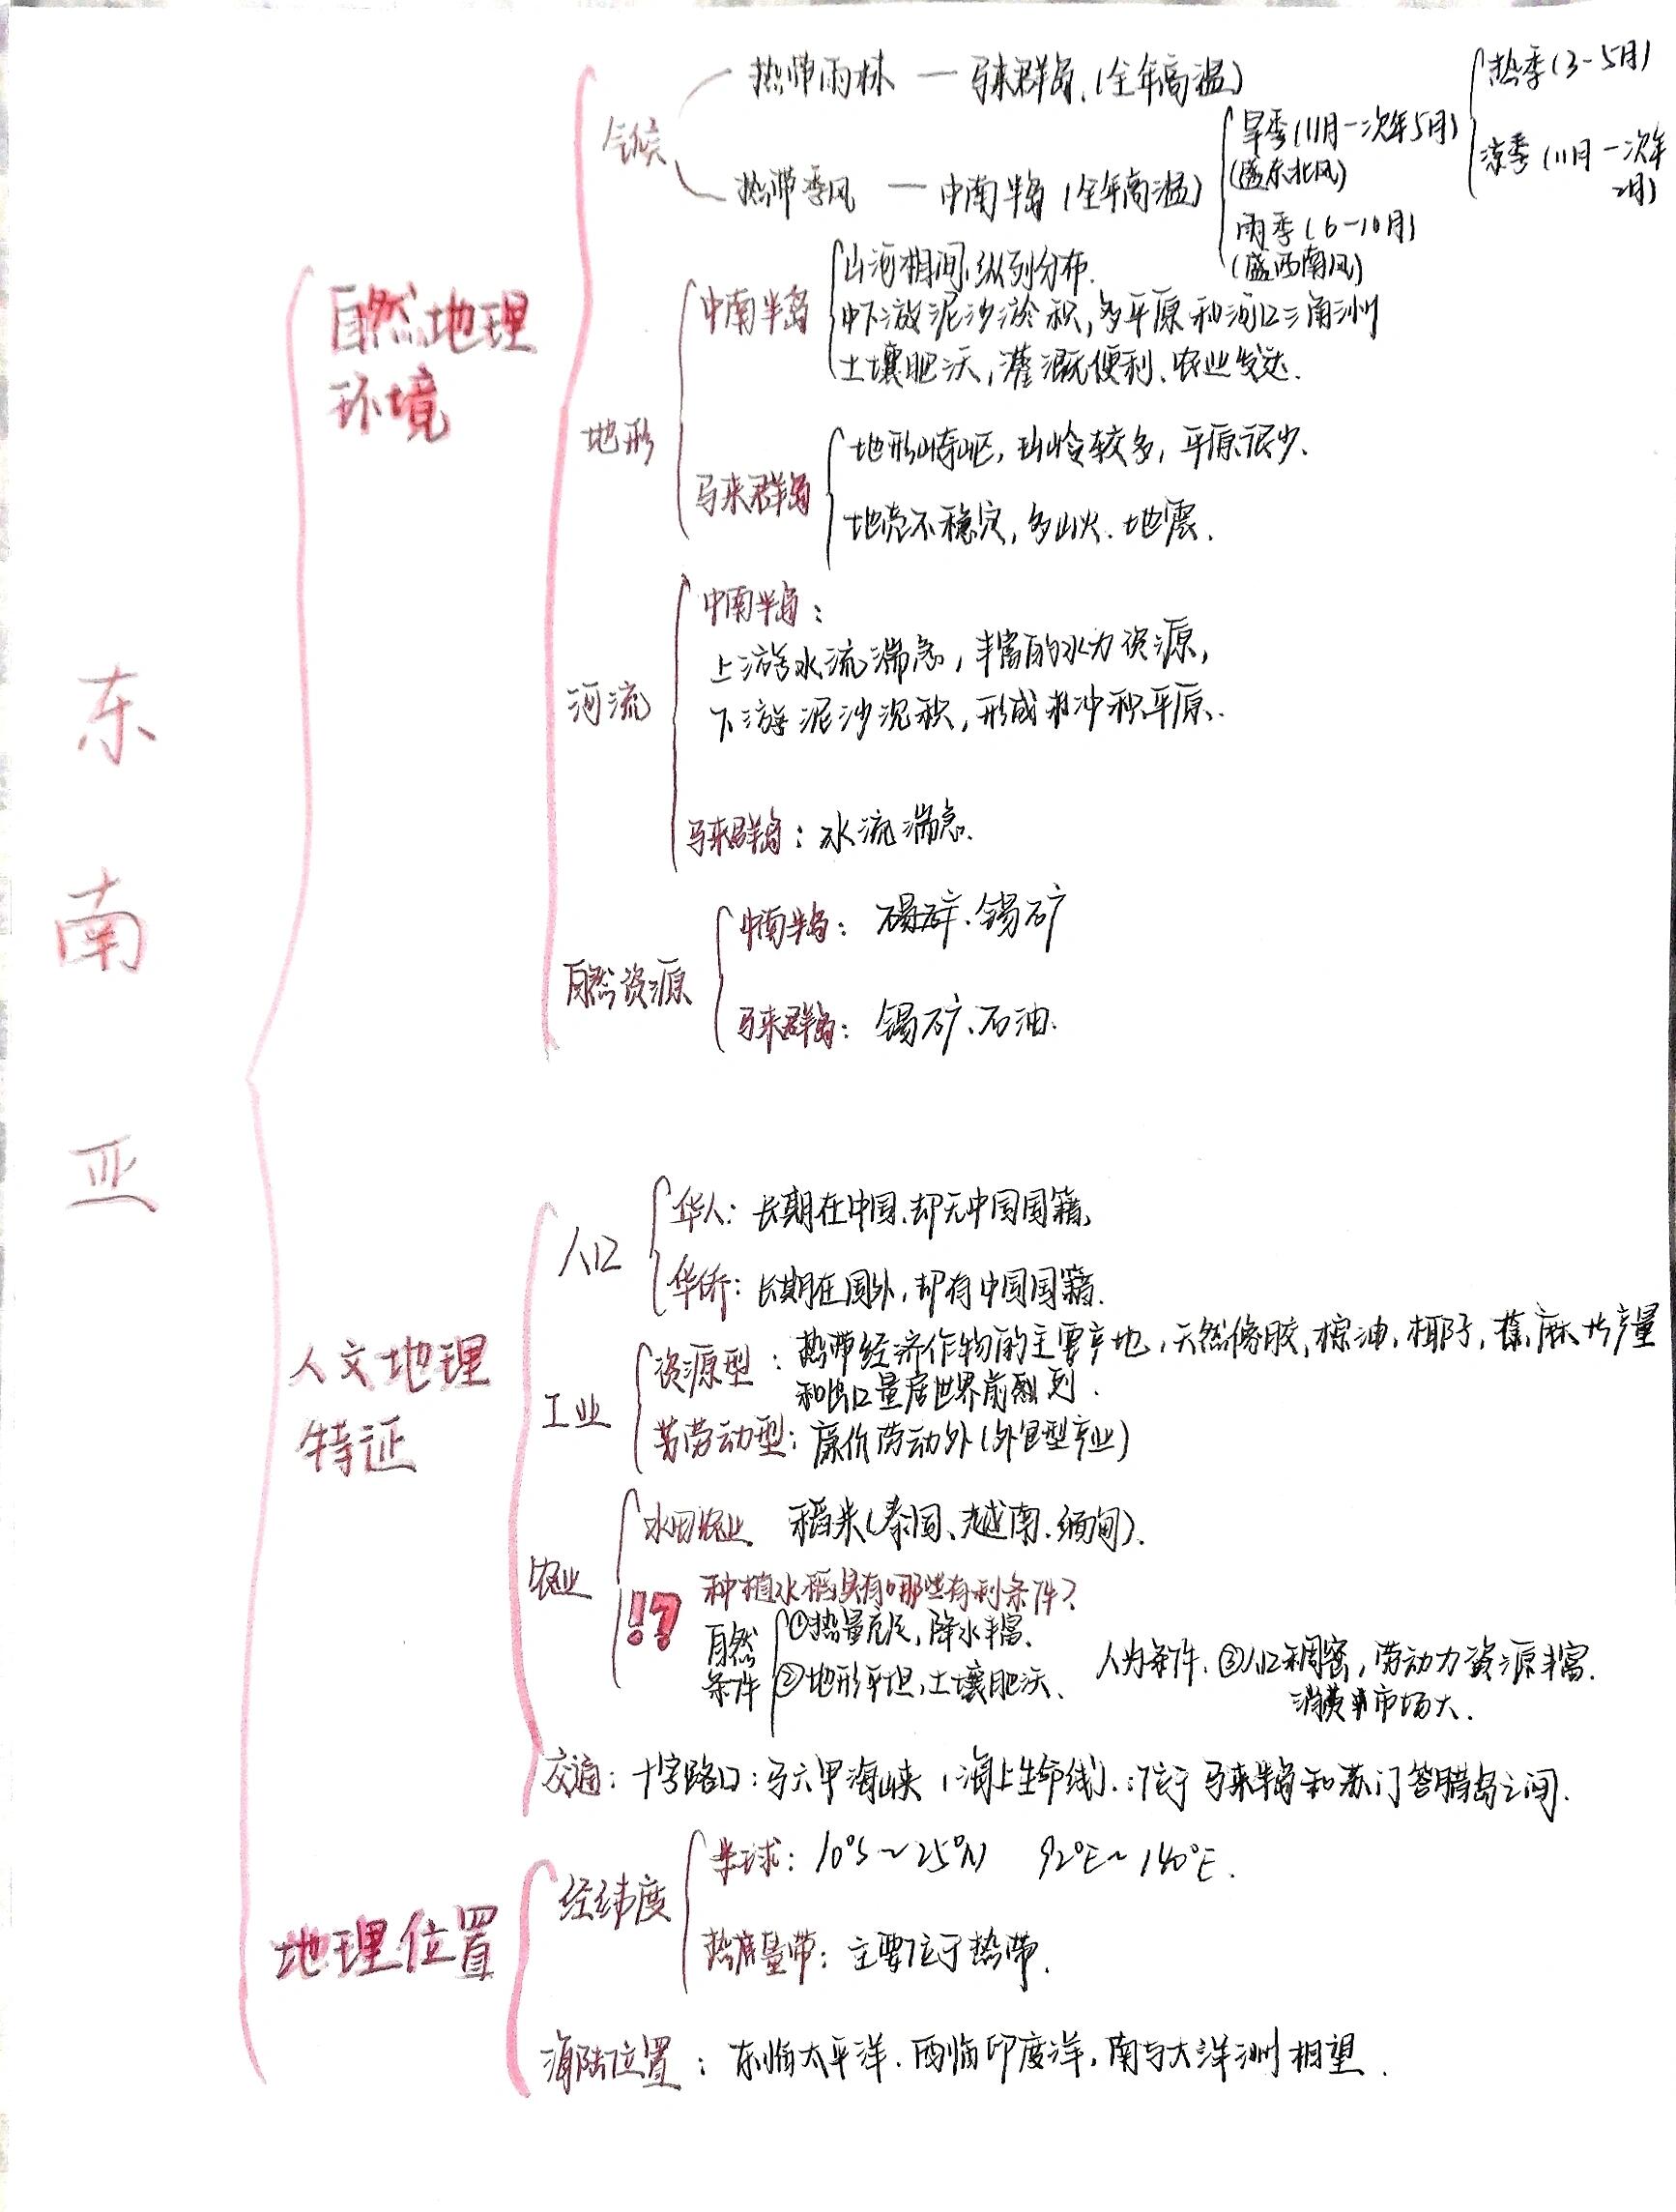 东南亚
自然地理
环境
气候
热带雨林 — 马来群岛 (全年高温)
热带季风 — 中南半岛 (全年高温)
旱季 (11月—次年5月)
(盛东北风)
热季 (3-5月)
凉季 (11月—次年
2月)
雨季 (6-10月)
(盛西南风)
地形
中南半岛
山河相间、纵列分布.
中下游泥沙淤积, 多平原和河口三角洲
土壤肥沃, 灌溉便利、农业发达.
马来群岛
地形崎岖, 山岭较多, 平原很少.
地壳不稳定, 多火山、地震.
河流
中南半岛:
上游水流湍急, 丰富的水力资源,
下游泥沙沉积, 形成冲积平原.
马来群岛: 水流湍急.
自然资源
中南半岛: 锡矿
马来群岛: 锡矿、石油.
人文地理
特证
人口
华人: 长期在中国, 却无中国国籍,
华侨: 长期在国外, 却有中国国籍.
工业
资源型: 热带经济作物的主要产地, 天然橡胶, 棕油, 椰子, 蕉麻 产量
和出口量居世界前列.
劳动型: 廉价劳动外 (外包型产业)
农业
水田农业 稻米 (泰国、越南、缅甸).
!? 种植水稻具有哪些有利条件?
自然
条件
①热量充足, 降水丰富.
②地形平坦, 土壤肥沃、
人为条件. ③人口稠密, 劳动力资源丰富.
消费市场大.
交通: 十字路口: 马六甲海峡 (海上生命线). : 位于马来半岛和苏门答腊岛之间.
地理位置
经纬度
半球: 10°S~25°N 92°E~140°E.
热量带: 主要位于热带.
海陆位置: 东临太平洋、西临印度洋, 南与大洋洲相望.